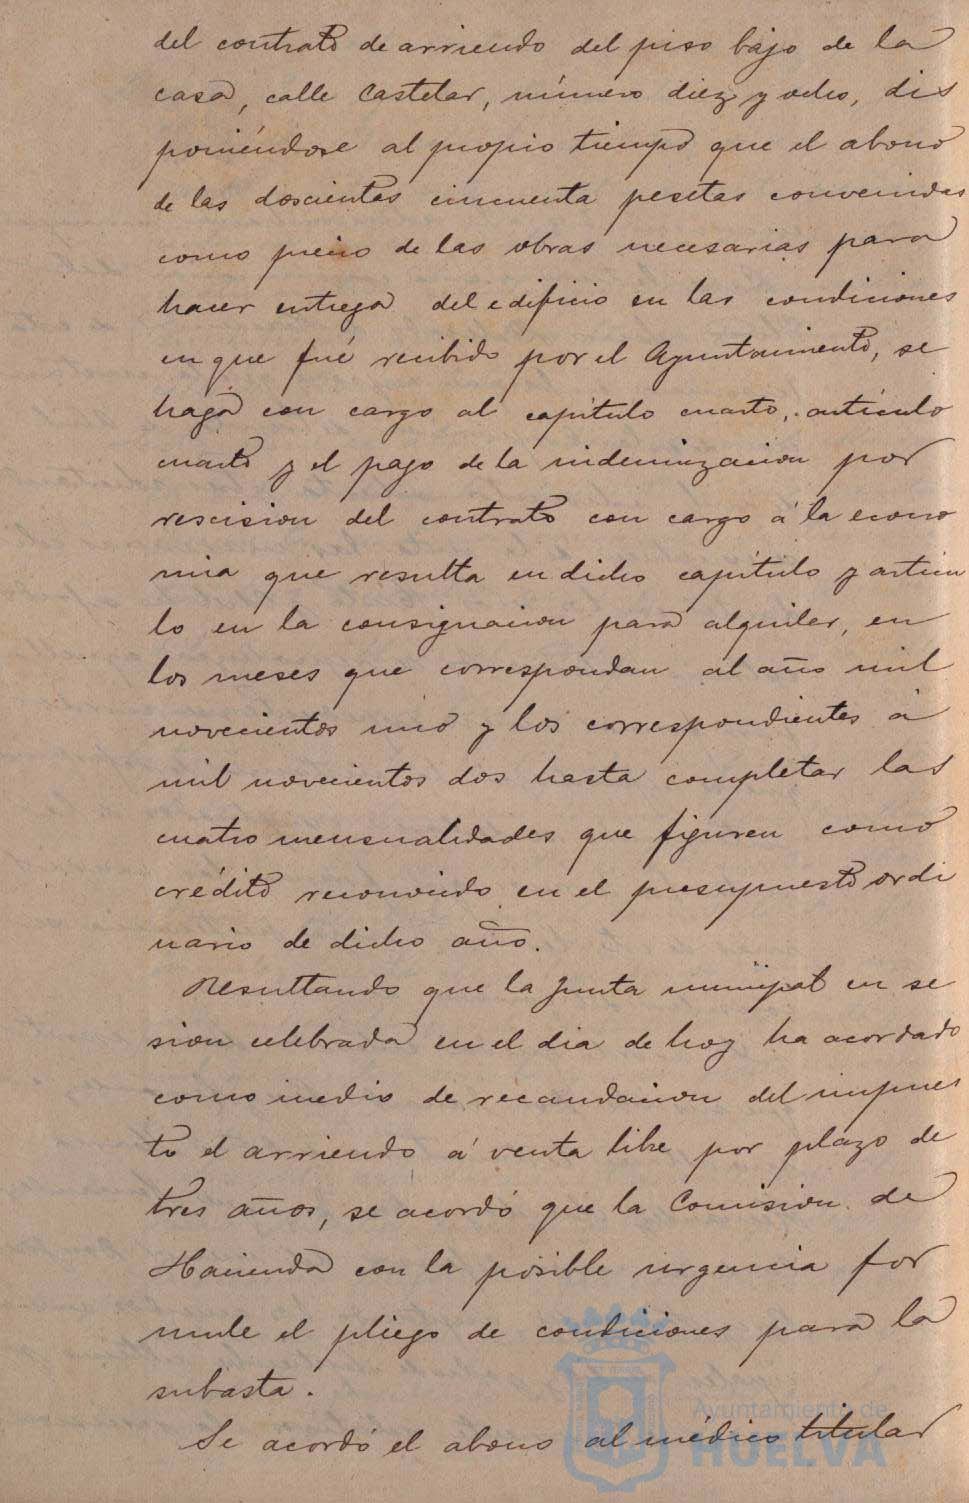 del contrato de arriendo del piso bajo de la
casa, calle Castelar, número diez y ocho, dis
poniéndose al propio tiempo que el abono
de las doscientas cincuenta pesetas convenidas
como precio de las obras necesarias para
hacer entrega del edificio en las condiciones
en que fué recibido por el Ayuntamiento, se
haga con cargo al capítulo cuarto, artículo
cuarto y el pago de la indemnizacion por
rescision del contrato con cargo á la econo
mia que resulta en dicho capítulo y articu
lo en la consignacion para alquiler, en
los meses que correspondan al año mil
novecientos uno y los correspondientes á
mil novecientos dos hasta completar las
cuatro mensualidades que figuren como
crédito reconocido en el presupuesto ordi
nario de dicho año.
Resultando que la Junta municipal en se
sion celebrada en el dia de hoy ha acordado
como medio de recaudacion del impues
to el arriendo á venta libre por plazo de
tres años, se acordó que la Comision de
Hacienda con la posible urgencia for
mule el pliego de condiciones para la
subasta.
Se acordó el abono al médico titular
Ayuntamiento de
HUELVA